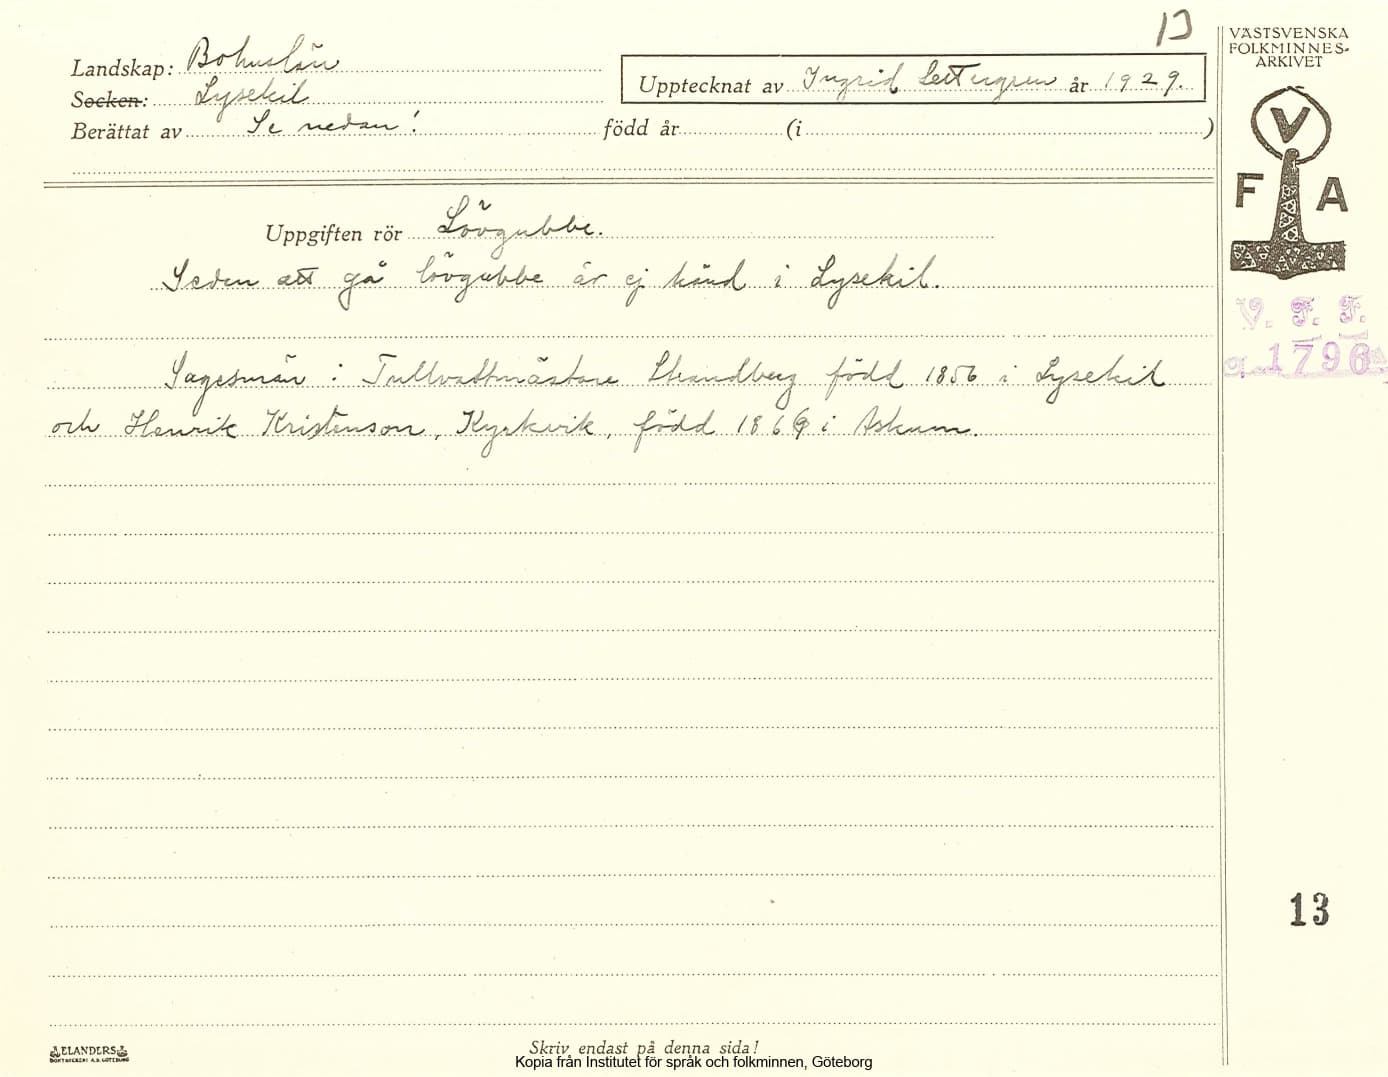 13
VÄSTSVENSKA
FOLKMINNES-
ARKIVET
Landskap: Bohuslän
Socken: Lysekil
Upptecknat av Ingrid år 1929.
Berättat av Se nedan! född år (i )
V
F A
Uppgiften rör Lövgubbe.
Seden att gå lövgubbe är ej känd i Lysekil.
V. F. F.
1796
Sagesmän : Tullvaktmästare Strandberg född 1856 i Lysekil
och Henrik Kristenson, Kyrkvik, född 1869 i Askum.
13
ELANDERS
BOKTRYCKERI A.B. GÖTEBORG
Skriv endast på denna sida!
Kopia från Institutet för språk och folkminnen, Göteborg